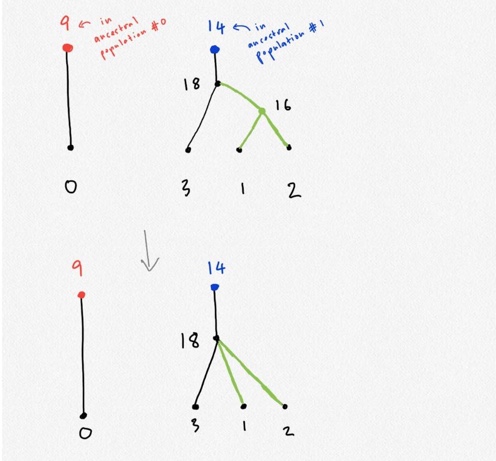 9 ← in
ancestral
population #0
14 ← in
ancestral
population #1
18
16
0
3 1 2
9
14
18
0
3 1 2